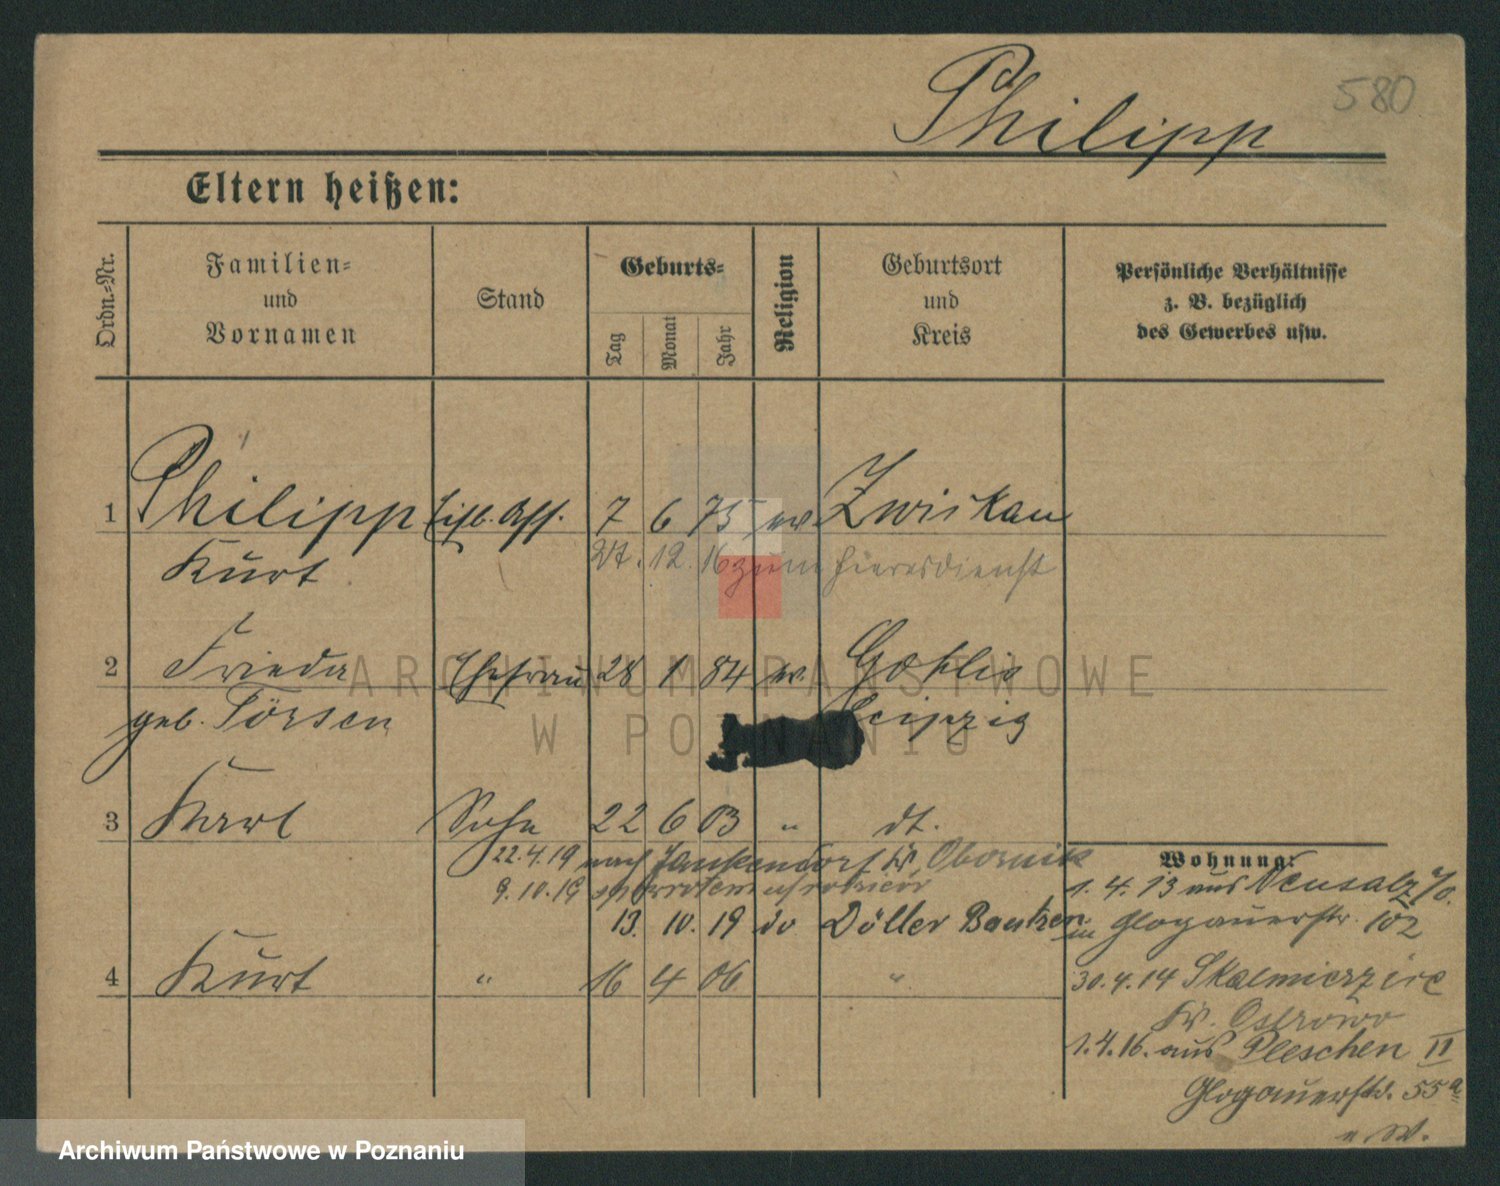 580
Philipp
Eltern heißen:
Ordn.-Nr.
Familien-
und
Vornamen
Stand
Geburts-
Tag
Monat
Jahr
Religion
Geburtsort
und
Kreis
Persönliche Verhältnisse
z. B. bezüglich
des Gewerbes usw.
1 Philipp Eisb. Ass. 7 6 75 ev. Zwickau
Kurt 27. 12. 16 zum Heeresdienst
2 Frieda Ehefrau 28 1 84 ev. Gohlis
geb. Törsen Leipzig
3 Karl Sohn 22 6 03 " dt.
22.4.19 nach Kr. Obornik
9.10.19
13. 10. 19 do Döller Bautzen
4 Kurt " 16 4 06 "
Wohnung:
1. 4. 13 aus Neusalz /O.
in Glogauerstr. 102
30.4.14 Skalmierzice
Kr. Ostrowo
1.4.16. aus Pleschen II
Glogauerstr. 55a
n. W.
ARCHIWUM PAŃSTWOWE
W POZNANIU
Archiwum Państwowe w Poznaniu